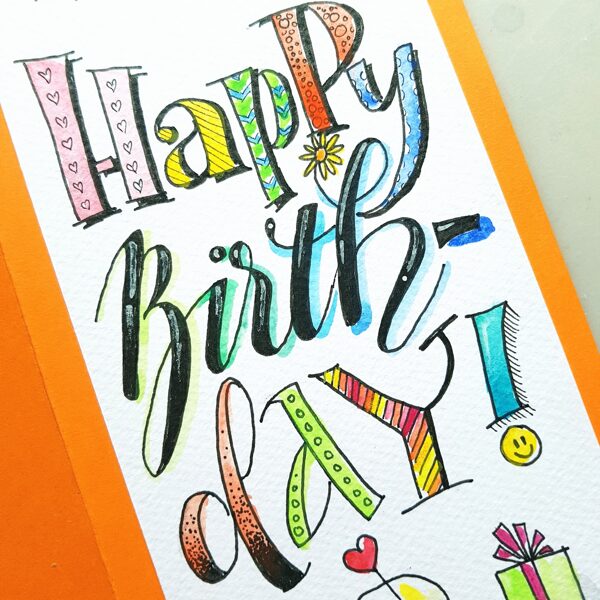 HappY
Birth-
day!